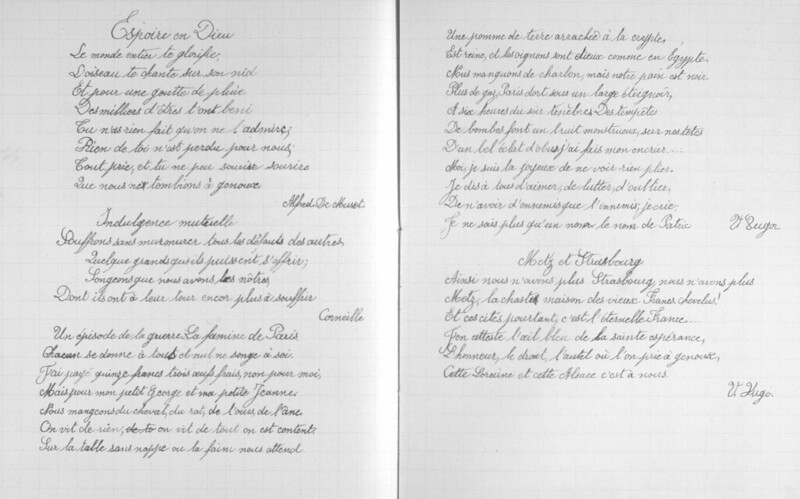 Espoire en Dieu
Le monde entier te glorifie,
L'oiseau te chante sur son nid
Et pour une goutte de pluie
Des milliers d'êtres t'ont beni
Tu n'as rien fait qu'on ne l'admire;
Rien de toi n'est perdu pour nous;
Tout prie, et tu ne peu sourire
Que nous ne tombions à genoux
Alfred De Muset.
Indulgence mutuelle
Souffrons sans murmurer tous les défauts des autres
Quelque grands qu'ils puissent s'offrir;
Songeons que nous avons les nôtres,
Dont ils ont à leur tour encor plus à souffrir
Corneille
Un épisode de la guerre La famine de Paris
Chacun se donne à tous et nul ne songe à soi.
J'ai payé quinze francs trois œufs frais, non pour moi,
Mais pour mon petit George et ma petite Jeanne.
Nous mangeons du cheval, du rat, de l'ours, de l'ane.
On vit de rien, on vit de tout on est content.
Sur la table sans nappe ou la faim nous attend
Une pomme de terre arrachée à la crypte,
Est reine, et les oignons sont dieux comme en Égypte.
Nous manquons de charbon, mais notre pain est noir
Plus de gaz, Paris dort sous un large éteignoir,
A six heures du soir ténèbres. Des tempêtes
De bombes font un bruit monstrueux sur nos têtes
D'un bel éclat d'obus j'ai fais mon encrier...
Moi, je suis la joyeux de ne voir rien plier.
Je dis à tous d'aimer, de lutter, d'oublier,
De n'avoir d'ennemis que l'ennemi; je crie
Je ne sais plus qu'un nom le nom de Patrie
V Eugor
Metz et Strasbourg
Ainsi nous n'avons plus Strasbourg, nous n'avons plus
Metz, la chaste maison des vieux Francs chevelus!
Et ces cités pourtant, c'est l'éternelle France...
J'en atteste l'œil bleu de la sainte espérance,
L'honneur, le droit, l'autel où l'on prie à genoux,
Cette Lorraine et cette Alsace c'est à nous.
V. Hugo.